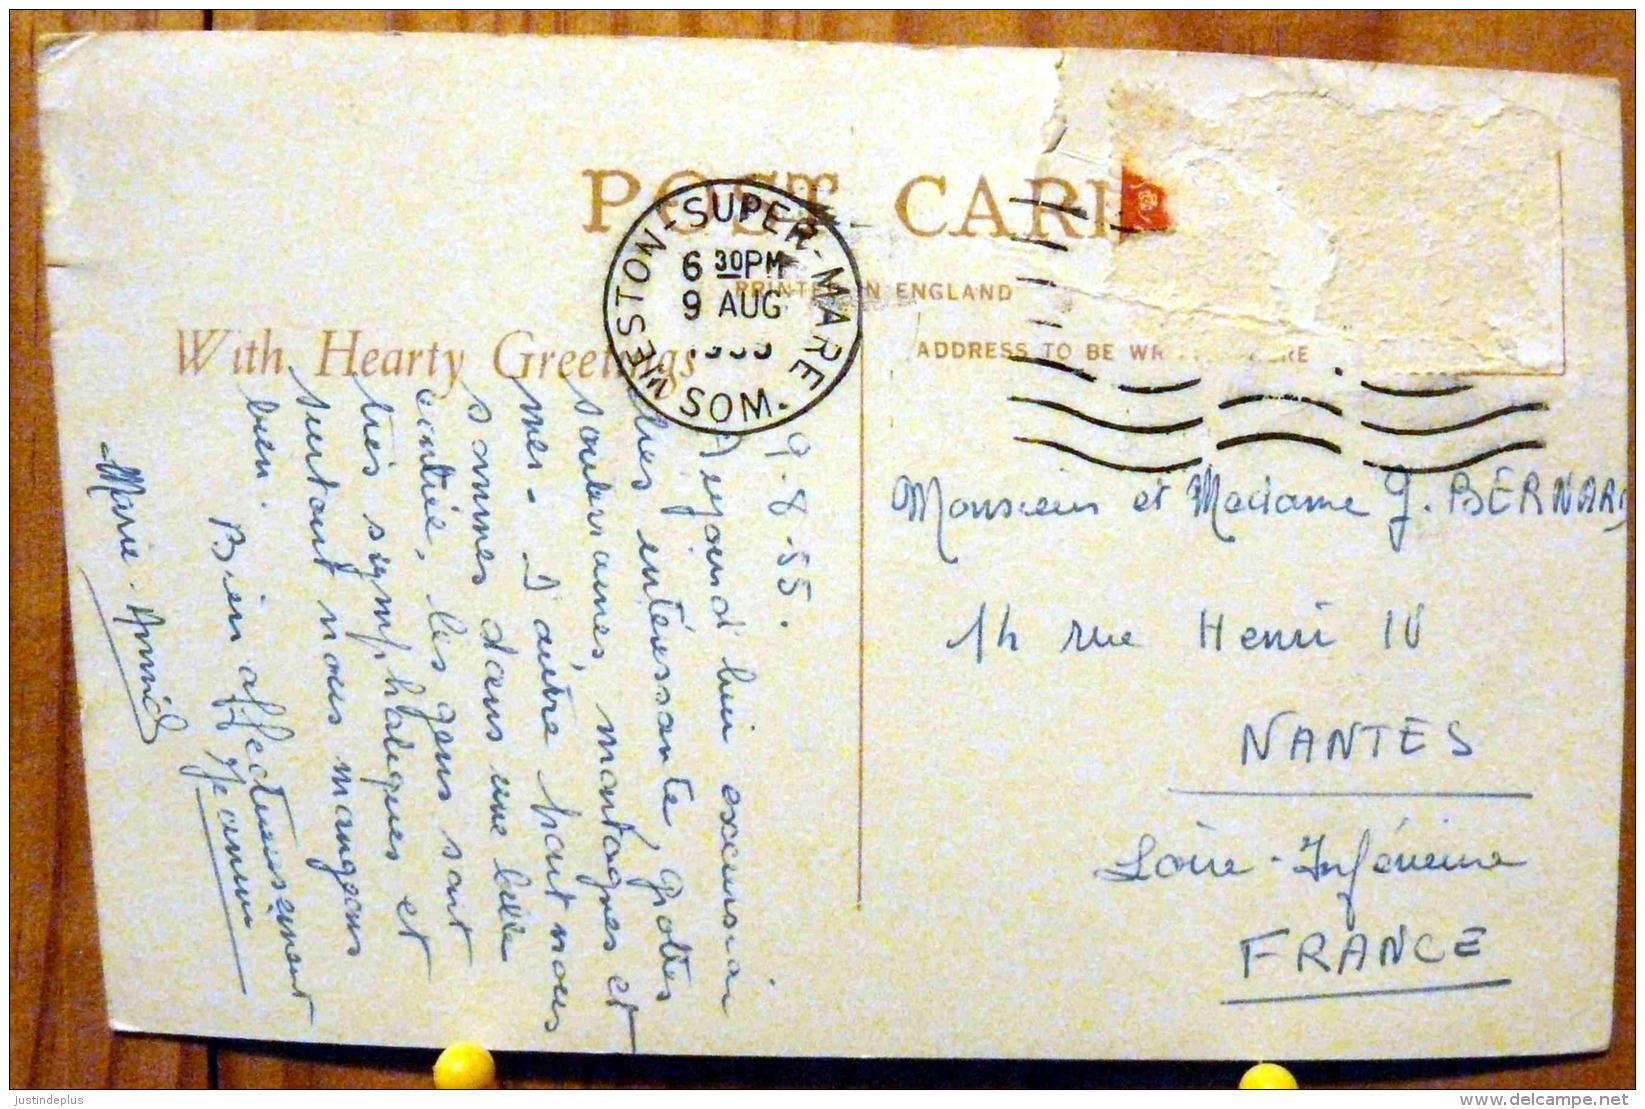 POST CARD
PRINTED IN ENGLAND
With Hearty Greetings
ADDRESS TO BE WR HERE
WESTON-SUPER-MARE SOM.
6 30PM
9 AUG
9.8.55.
Aujourd'hui excursion
très intéressante, grottes
souterraines, montagnes et
mer. D'autre part nous
sommes dans une belle
contrée, les gens sont
très symphatiques et
surtout nous mangeons
bien. Bien affectueusement
Jeannine
Marie-Annick
Monsieur et Madame J. BERNARD
14 rue Henri IV
NANTES
Loire-Inférieure
FRANCE
justindeplus
www.delcampe.net